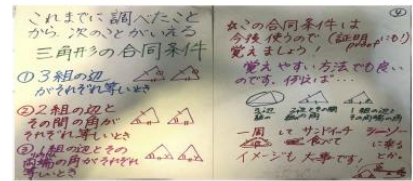 これまでに調べたこと
から、次のことがいえる
三角形の合同条件
①3組の辺
がそれぞれ等しいとき
②2組の辺と
その間の角が
それぞれ等しいとき
③1組の辺と
両端の角がそれぞれ
等しいとき
④
☆この合同条件は
今後使うので(証明にも!)
proof
覚えましょう!
覚えやすい方法でも良い
のです。例えば…
一周して サンドイッチ シーソー
食べて に乗る
とか。
イメージも大事です。